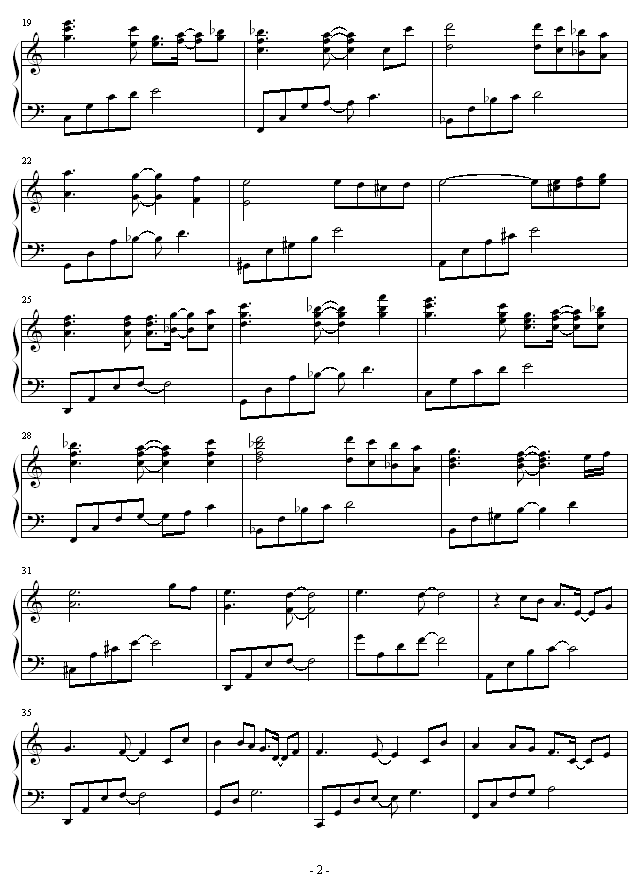 19
22
25
28
31
35
- 2 -